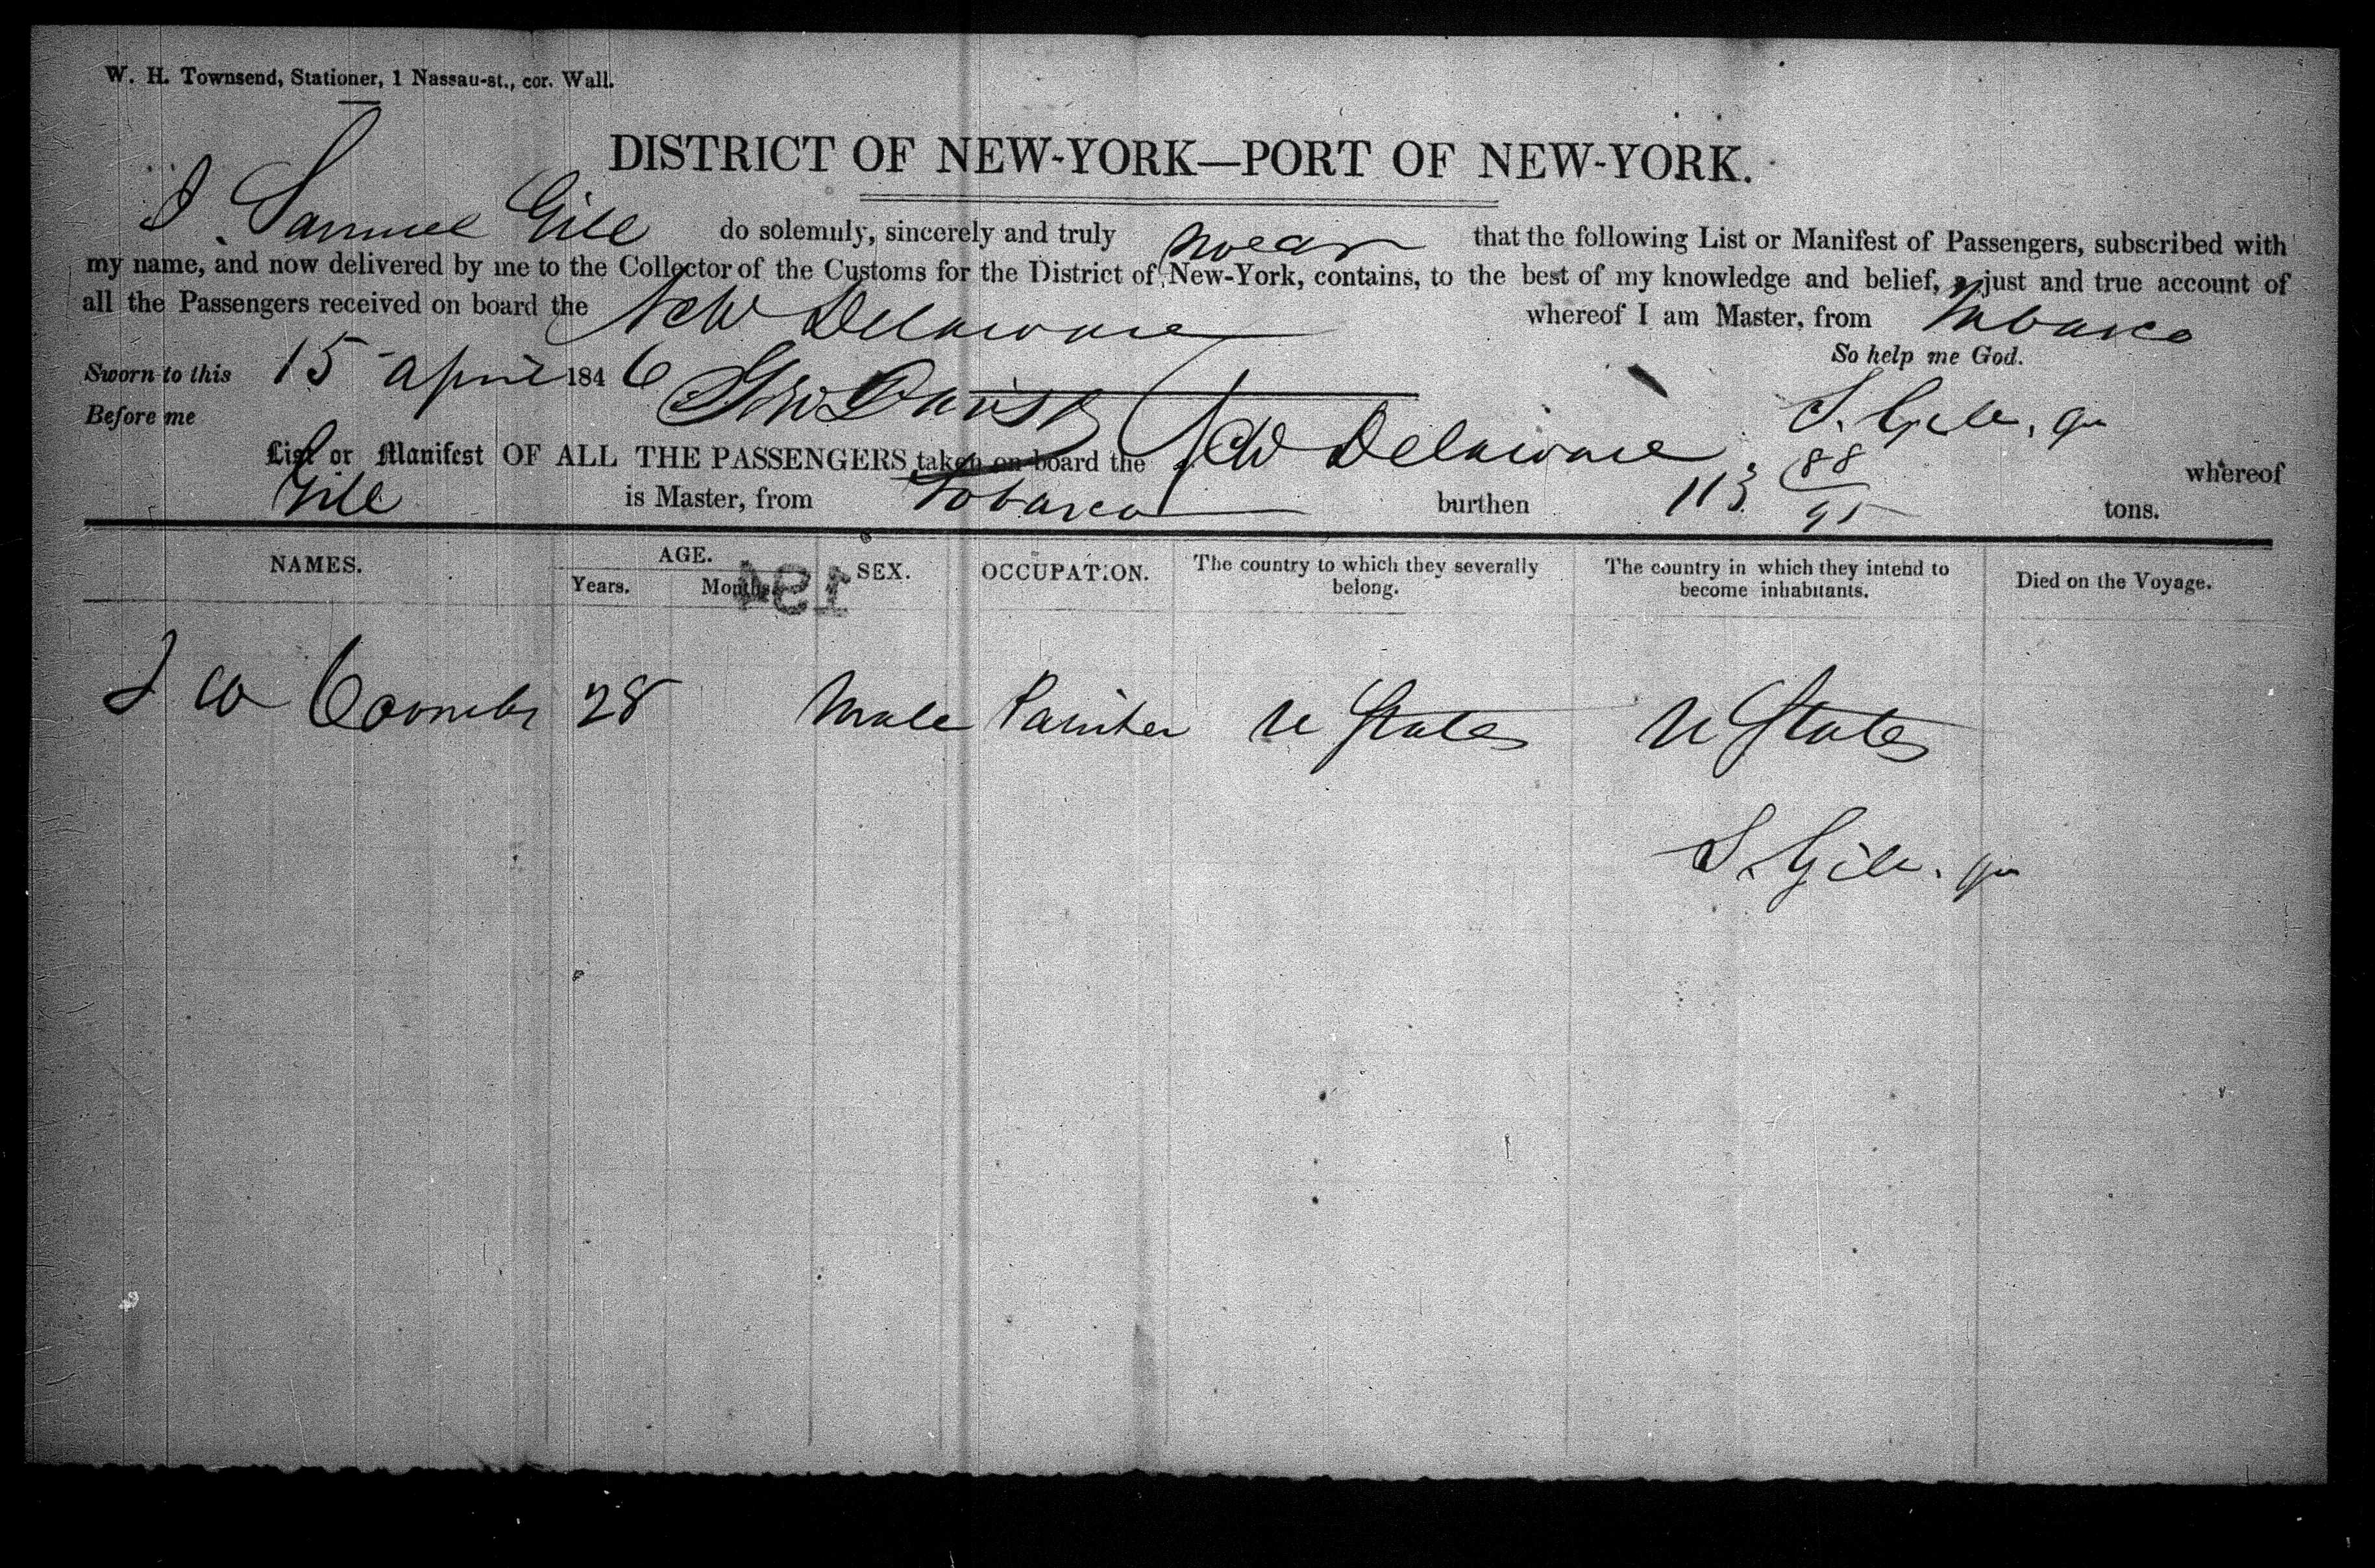 W. H. Townsend, Stationer, 1 Nassau-st., cor. Wall.
DISTRICT OF NEW-YORK—PORT OF NEW-YORK.
I Samuel Gill do solemnly, sincerely and truly swear that the following List or Manifest of Passengers, subscribed with
my name, and now delivered by me to the Collector of the Customs for the District of New-York, contains, to the best of my knowledge and belief, a just and true account of
all the Passengers received on board the Sch Delaware whereof I am Master, from Tabasco
So help me God.
Sworn to this 15 April 1846
Before me S. Gill, Jr
List or Manifest OF ALL THE PASSENGERS taken on board the Sch Delaware whereof
Gill is Master, from Tobasco burthen 113 88/95 tons.
NAMES. AGE. Years. Months. SEX. OCCUPATION. The country to which they severally belong. The country in which they intend to become inhabitants. Died on the Voyage.
194
J W Coombs 28 Male Painter U States U States
S. Gill. Jr